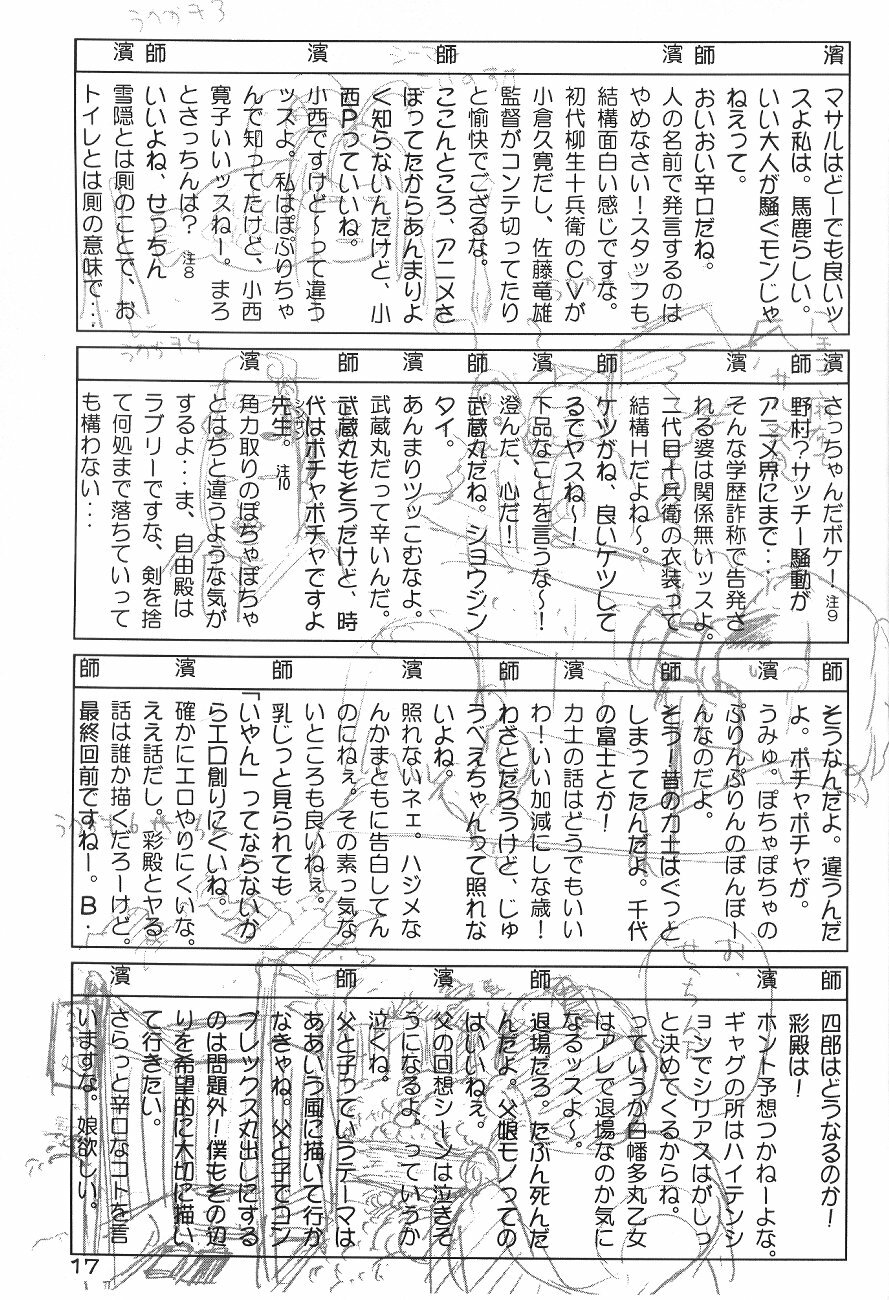 濱 師 濱 師 濱 師 濱
マサルはどーでも良いッ
スよ私は。馬鹿らしい。
いい大人が騒ぐモンじゃ
ねえって。
おいおい辛口だね。
人の名前で発言するのは
やめなさい！スタッフも
結構面白い感じですな。
初代柳生十兵衛のＣＶが
小倉久寛だし、佐藤竜雄
監督がコンテ切ってたり
と愉快でござるな。
ここんところ、アニメさ
ぼってたからあんまりよ
く知らないんだけど、小
西Ｐっていいね。
小西ですけど〜って違う
ッスよ。私はぽぷりちゃ
んで知ってたけど、小西
寛子いいッスねー。まろ
とさっちんは？ 注８
いいよね、せっちん
雪隠とは厠のことで、お
トイレとは厠の意味で…
濱 師 濱 師 濱 師 濱 師 濱
さっちゃんだボケ！ 注９
野村？サッチー騒動が
アニメ界にまで…
そんな学歴詐称で告発さ
れる姿は関係無いッスよ。
二代目十兵衛の衣装って
結構Ｈだよね〜。
ケツがね、良いケツして
るでヤスね〜！
下品なことを言うな〜！
澄んだ、心だ！
武蔵丸だね。ショウジン
タイ。
あんまりツッこむなよ。
武蔵丸だって辛いんだ。
武蔵丸もそうだけど、時
代はポチャポチャですよ
先生。 注10
角力取りのぽちゃぽちゃ
とはちと違うような気が
するよ…ま、自由殿は
ラブリーですな、剣を捨
て何処まで落ちていって
も構わない…
師 濱 師 濱 師 濱 師 濱 師
そうなんだよ。違うんだ
よ。ポチャポチャが。
うみゅ。ぽちゃぽちゃの
ぷりんぷりんのぼんぼー
んなのだよ。
そう！昔の力士はぐっと
しまってたんだよ。千代
の富士とか！
力士の話はどうでもいい
わ！いい加減にしな歳！
わざとだろうけど、じゅ
うべえちゃんって照れな
いよね。
照れないネェ。ハジメな
んかまともに告白してん
のにねぇ。その素っ気な
いところも良いねぇ。
乳じっと見られても
「いやん」ってならないか
らエロ創りにくいね。
確かにエロやりにくいな。
ええ話だし。彩殿とヤる
話は誰か描くだろーけど。
最終回前ですねー。Ｂ・
師 濱 師 濱 師 濱
四郎はどうなるのか！
彩殿は！
ホント予想つかねーよな。
ギャグの所はハイテンシ
ョンでシリアスはがしっ
と決めてくるからね。
っていうか白幡多丸乙女
はアレで退場なのか気に
なるッスよ〜。
退場だろ。たぶん死んだ
んだよ。父娘モノっての
はいいねぇ。
父の回想シーンは泣きそ
うになるよ。っていうか
泣くね。
父と子っていうテーマは
ああいう風に描いて行か
なきゃね。父と子でコン
プレックス丸出しにする
のは問題外！僕もその辺
りを希望的に大切に描い
て行きたい。
さらっと辛口なコトを言
いますな。娘欲しい。
17